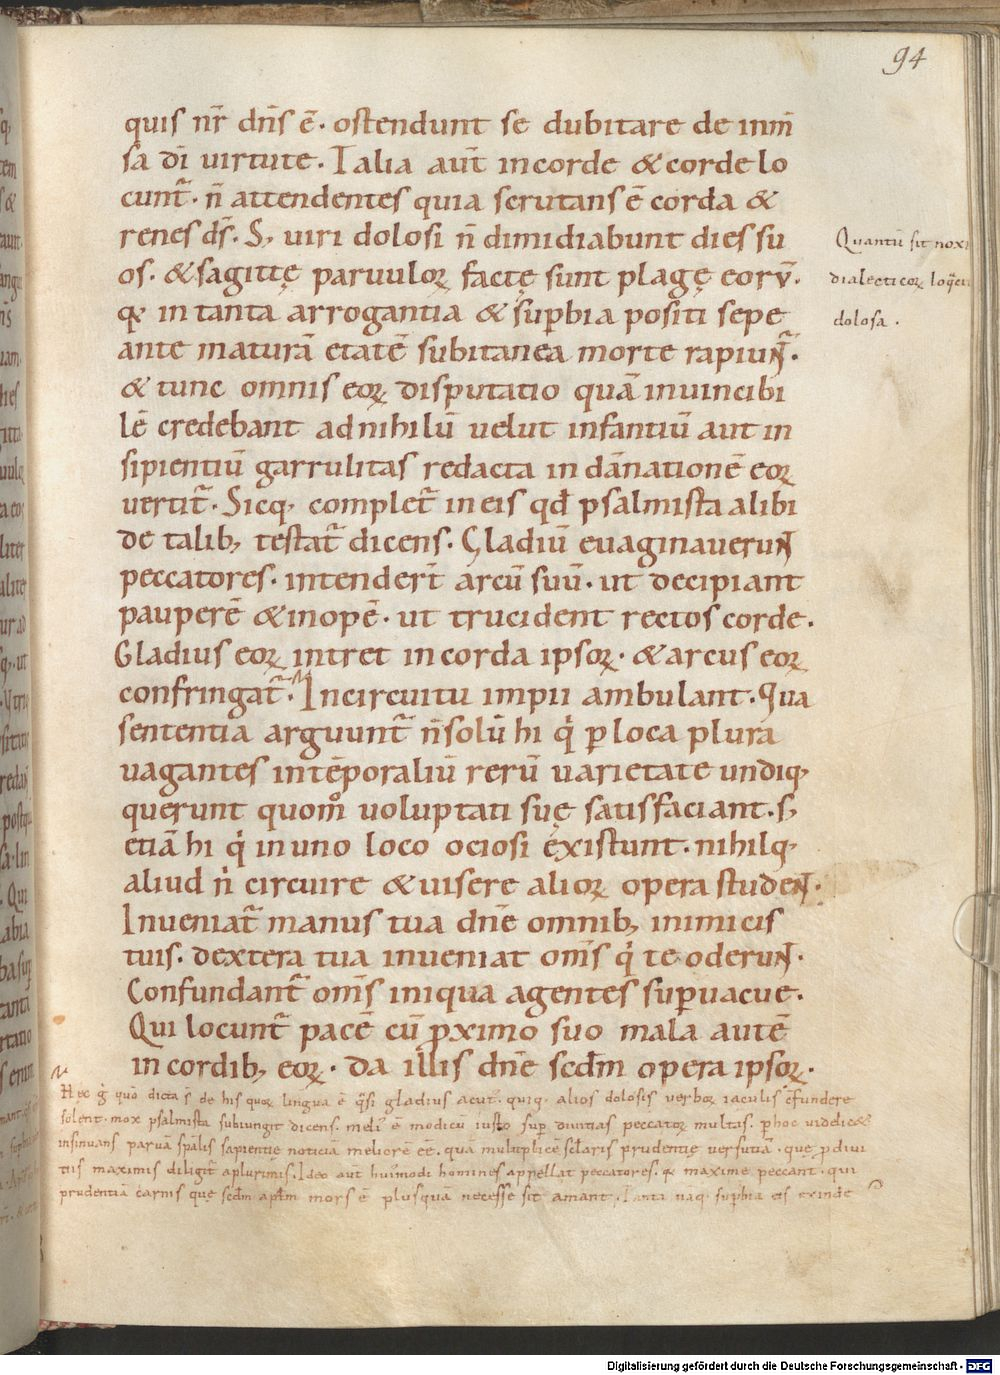 94
quis nr̄ dn̄s ē. ostendunt se dubitare de inm̄
sa dī uirtute. Talia aut̄ incorde & corde lo
cunt̄. n̄ attendentes quia scrutans ē corda &
renes ds̄. S; uiri dolosi n̄ dimidiabunt dies su
os. & sagittę paruuloꝝ factę sunt plagę eorū.
qꝛ in tanta arrogantia & suꝑbia positi sepe
ante maturā etatē subitanea morte rapiunt̄.
& tunc omnis eoꝝ disputatio quā inuincibi
lē credebant adnihilū uelut infantiū aut in
sipientiū garrulitas redacta in dānationē eoꝝ
uertit̄. Sicq; complet̄ in eis qđ psalmista alibi
de talib; testat̄ dicens. Gladiū euaginauerunt
peccatores. intender̄t arcū suū. ut decipiant
pauperē & inopē. ut trucident rectos corde.
Gladius eoꝝ intret in corda ipsoꝝ. & arcus eoꝝ
confringat̄. Incircuitu impii ambulant. Qua
sententia arguunt̄ n̄ solū hi qͥ ꝑ loca plura
uagantes intēporaliū rerū uarietate undiq;
querunt quom̊ uoluptati suę satisfaciant. s;
etiā hi qͥ in uno loco ociosi existunt. nihilq;
aliud nͥ circuire & uisere alioꝝ opera student.
Inueniat̄ manus tua dn̄e omnib; inimicis
tuis. dextera tua inueniat om̄s qͥ te oderunt.
Confundant̄ om̄s iniqua agentes suꝑuacue.
Qui locunt̄ pacē cū ꝓximo suo mala autē
in cordib; eoꝝ. da illis dn̄e scd̄m opera ipsoꝝ.
Quantū sit noxi
dialecticoꝝ loq̄
dolosa.
Hec gͦ quō dicta s̄ de his quoꝝ lingua ē q̄si gladius acut̄. quiq; alios dolosis uerboꝝ iaculis cfundere
solent. mox psalmista subiungit dicens. meliꝰ ē modicū iusto suꝑ diuitias peccatoꝝ multas. ꝑ hoc uidelic&
insinuans paruā sp̄alis sapientię noticiā meliorē ēē. quā multiplicē sc̄laris prudentię uersutiā. quę ꝓdiui
tiis maximis diligit̄ a plurimis. Ideo aut̄ huiꝰmodi homines appellat peccatores. qꝛ maxime peccant. qui
prudentiā carnis quę scd̄m apl̄m mors ē plusquā necesse sit amant. Tanta nāq; suꝑbia eis exinde
Digitalisierung gefördert durch die Deutsche Forschungsgemeinschaft - DFG